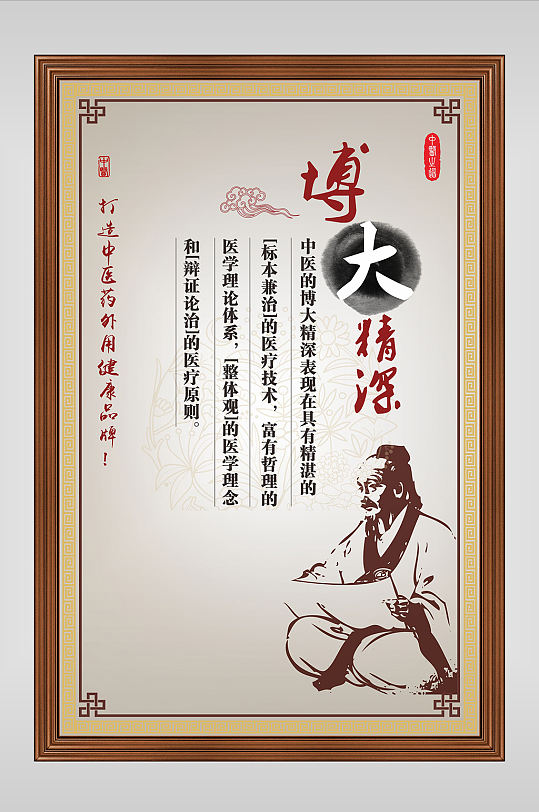 中醫之術
博大精深
中医的博大精深表现在具有精湛的
[标本兼治]的医疗技术，富有哲理的
医学理论体系，[整体观]的医学理念
和[辩证论治]的医疗原则。
中醫
打造中医药外用健康品牌！